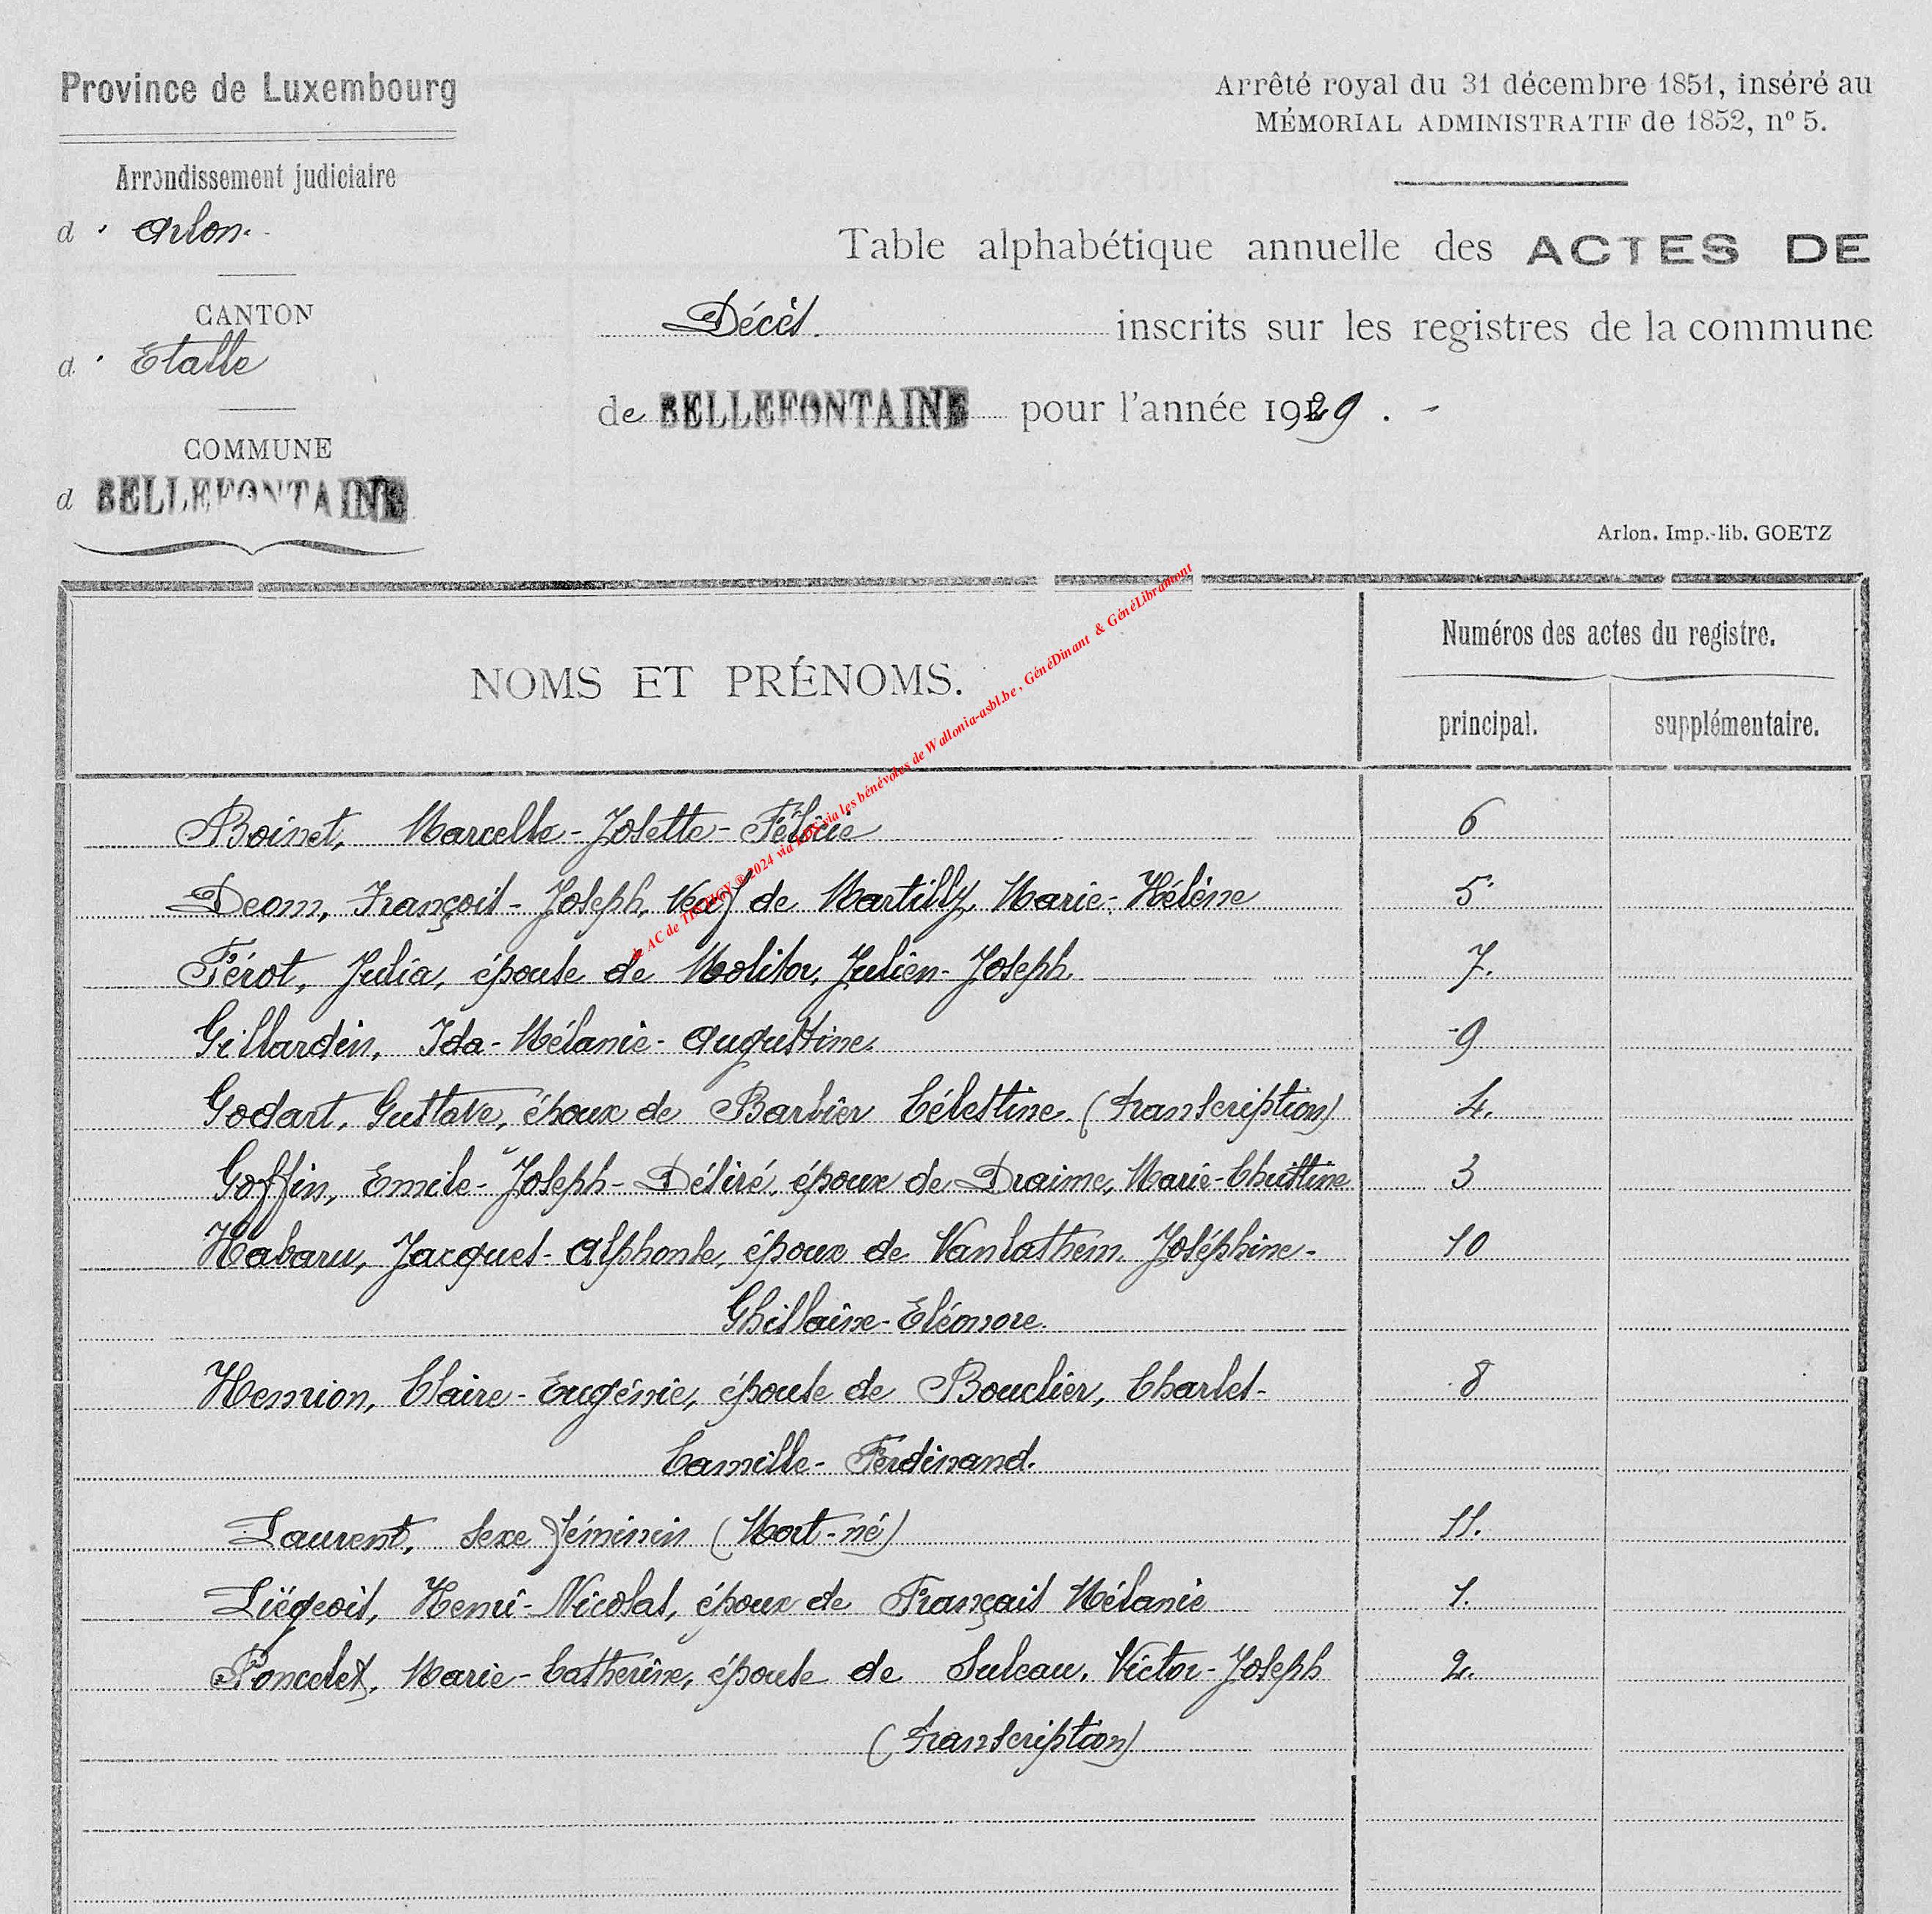 Province de Luxembourg
Arrondissement judiciaire
d' Arlon.
CANTON
d' Etalle
COMMUNE
d BELLEFONTAINE
Arrêté royal du 31 décembre 1851, inséré au
MÉMORIAL ADMINISTRATIF de 1852, nº 5.
Table alphabétique annuelle des ACTES DE
Décès. inscrits sur les registres de la commune
de BELLEFONTAINE pour l'année 1929. -
Arlon. Imp.-lib. GOETZ
NOMS ET PRÉNOMS.
Numéros des actes du registre.
principal. supplémentaire.
de AC de TINTIGY ® 2024 via les bénévoles de Wallonia-asbl.be , GénéDinant & GénéLibramont
Boinet, Marcelle-Josette-Félicie 6
Deom, François-Joseph, veuf de Martilly, Marie-Hélène 5
Férot, Julia, épouse de Molitor, Julien-Joseph. 7.
Gillardin, Ida-Mélanie-Augustine. 9
Godart, Gustave, époux de Barbier Célestine. (transcription) 4.
Goffin, Emile-Joseph-Désiré, époux de Draime, Marie-Christine 3
Habaru, Jacques-Alphonse, époux de Vanlathem. Joséphine- 10
Ghillaine-Eléonore.
Henrion, Claire-Eugénie, épouse de Bouclier, Charles- 8
Camille-Ferdinand.
Laurent, sexe féminin (Mort-né) 11.
Liégeois, Henri-Nicolas, époux de Français Mélanie 1.
Poncelet, Marie-Catherine, épouse de Suleau, Victor-Joseph 2.
(transcription)